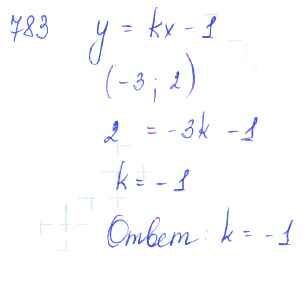 783 y = kx - 1
(-3; 2)
2 = -3k - 1
k = -1
Ответ: k = -1